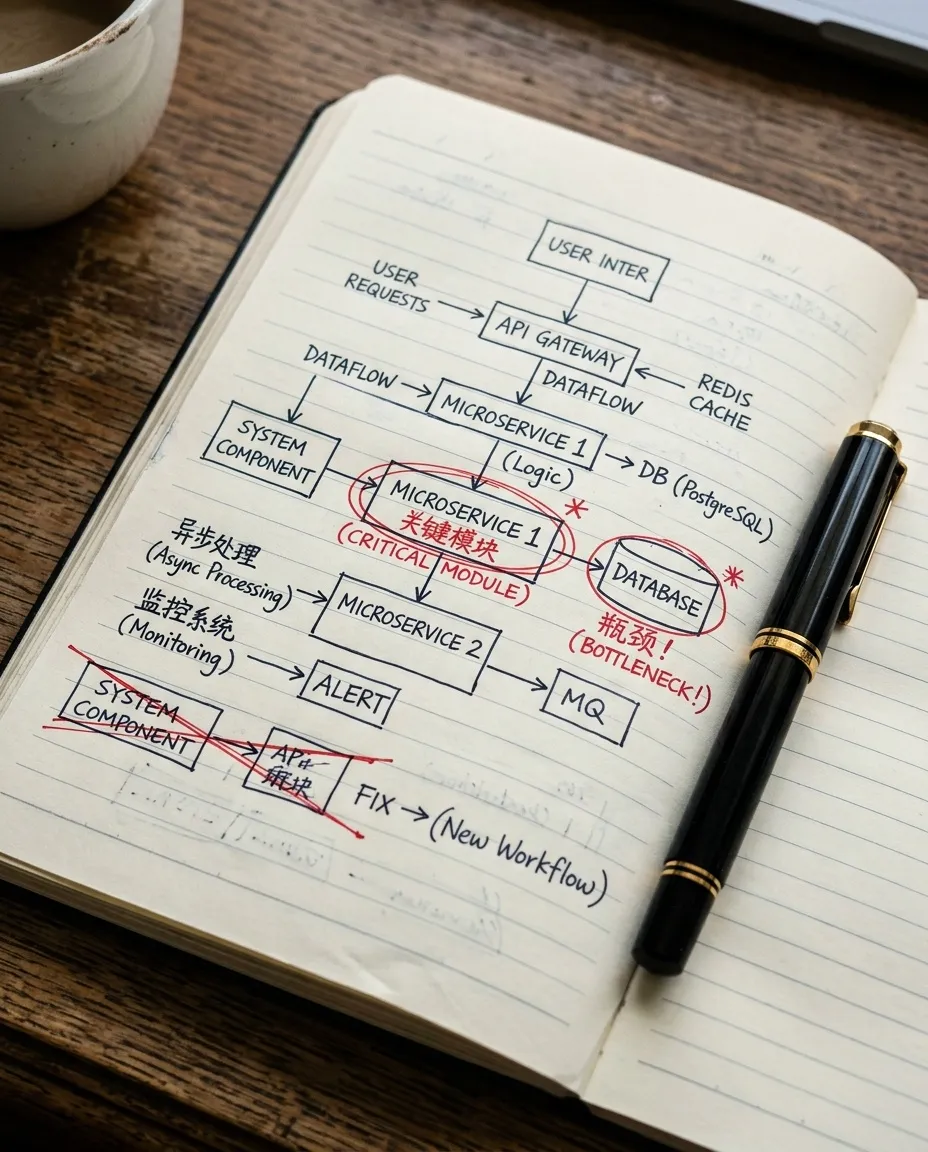 USER INTER
USER
REQUESTS
API GATEWAY
REDIS
CACHE
DATAFLOW
DATAFLOW
MICROSERVICE 1
(Logic)
DB (PostgreSQL)
SYSTEM
COMPONENT
MICROSERVICE 1
关键模块
(CRITICAL MODULE)
DATABASE
瓶颈!
(BOTTLENECK!)
异步处理
(Async Processing)
MICROSERVICE 2
监控系统
(Monitoring)
ALERT
MQ
SYSTEM
COMPONENT
FIX → (New Workflow)